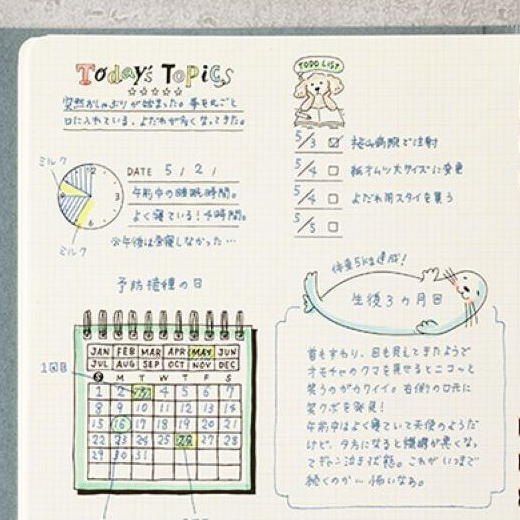 Today's Topics
突然おしゃぶりが始まった。手を丸ごと
口に入れている。よだれが多くなってきた。
ミルク
12
3
6
9
ミルク
DATE 5 / 2 /
午前中の睡眠時間。
よく寝ている!4時間。
午後は昼寝しなかった…
TODO LIST
5/3 病院で注射
5/4 紙オムツ大サイズに変更
5/4 よだれ用スタイを買う
5/5
予防接種の日
1回目
JAN FEB MAR APR MAY JUN
JUL AUG SEP OCT NOV DEC
S M T W T F S
1 2 3 4 5 6 7
8 9 10 11 12 13 14
15 16 17 18 19 20 21
22 23 24 25 26 27 28
29 30 31
体重5kg達成!
生後3ヵ月目
首もすわり、目も見えてきたようで
オモチャのクマを見せるとニコッと
笑うのがカワイイ。右側の口元に
笑クボを発見!
午前中はよく寝ていて天使のようだ
けど、夕方になると機嫌が悪くなっ
てギャン泣き状態。これがいつまで
続くのか…怖いなあ。